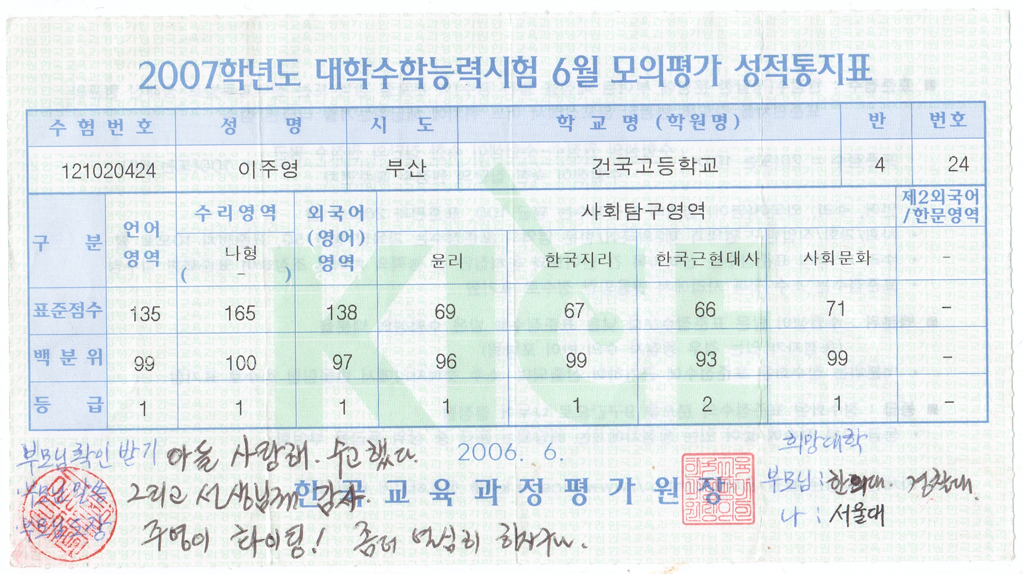 2007학년도 대학수학능력시험 6월 모의평가 성적통지표
수험번호 성명 시도 학교명 (학원명) 반 번호
121020424 이주영 부산 건국고등학교 4 24
구분 언어영역 수리영역 외국어(영어)영역 사회탐구영역 제2외국어/한문영역
( 나형 - ) 윤리 한국지리 한국근현대사 사회문화 -
표준점수 135 165 138 69 67 66 71 -
백분위 99 100 97 96 99 93 99 -
등급 1 1 1 1 1 2 1 -
2006. 6.
한국교육과정평가원장
부모님 확인 받기
부모님 말씀
부모님 도장
아들 사랑해. 수고했다.
그리고 선생님께 감사.
주영이 화이팅! 좀더 열심히 하자구나.
희망대학
부모님 : 한의대. 경찰대.
나 : 서울대